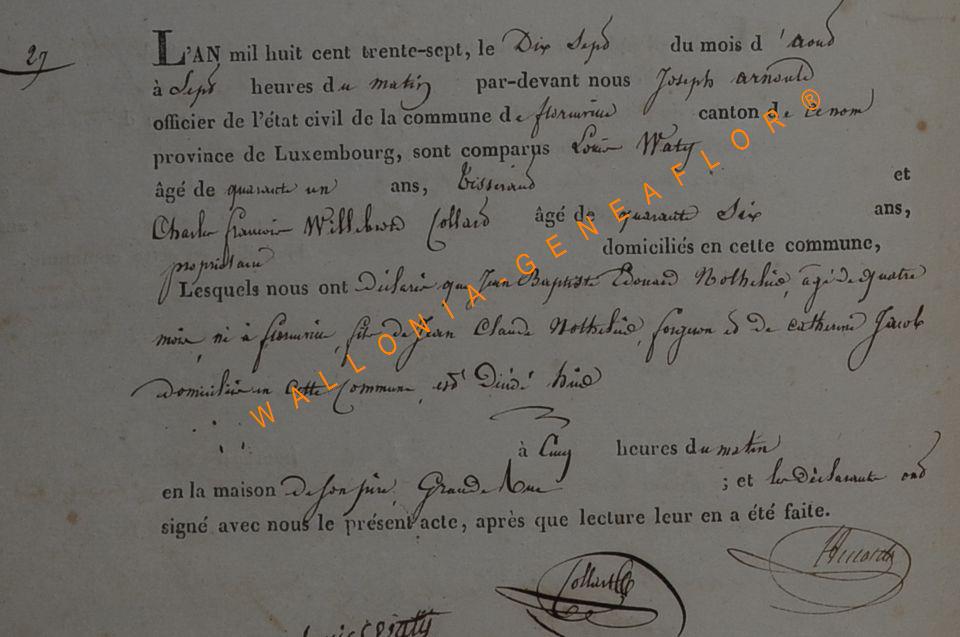 29
L'AN mil huit cent trente-sept, le Dix Sept du mois d'aout
à Sept heures du matin par-devant nous Joseph arnould
officier de l'état civil de la commune de florenville canton de ce nom
province de Luxembourg, sont comparus Louis Waty
âgé de quarante un ans, tisserand et
Charles françois Willebrord Collard âgé de quarante Six ans,
propriétaire domiciliés en cette commune,
Lesquels nous ont déclaré que Jean Baptiste Edouard Nothelin, agé de quatre
mois, né à florenville, fils de Jean Claude Nothelin, forgeron et de catherine Jacob
domiciliés en cette Commune, est Décédé hier
à Cinq heures du matin
en la maison de son père, Grande Rue ; et les déclarants ont
signé avec nous le présent acte, après que lecture leur en a été faite.
Collard
WALLONIA-GENEAFLOR®